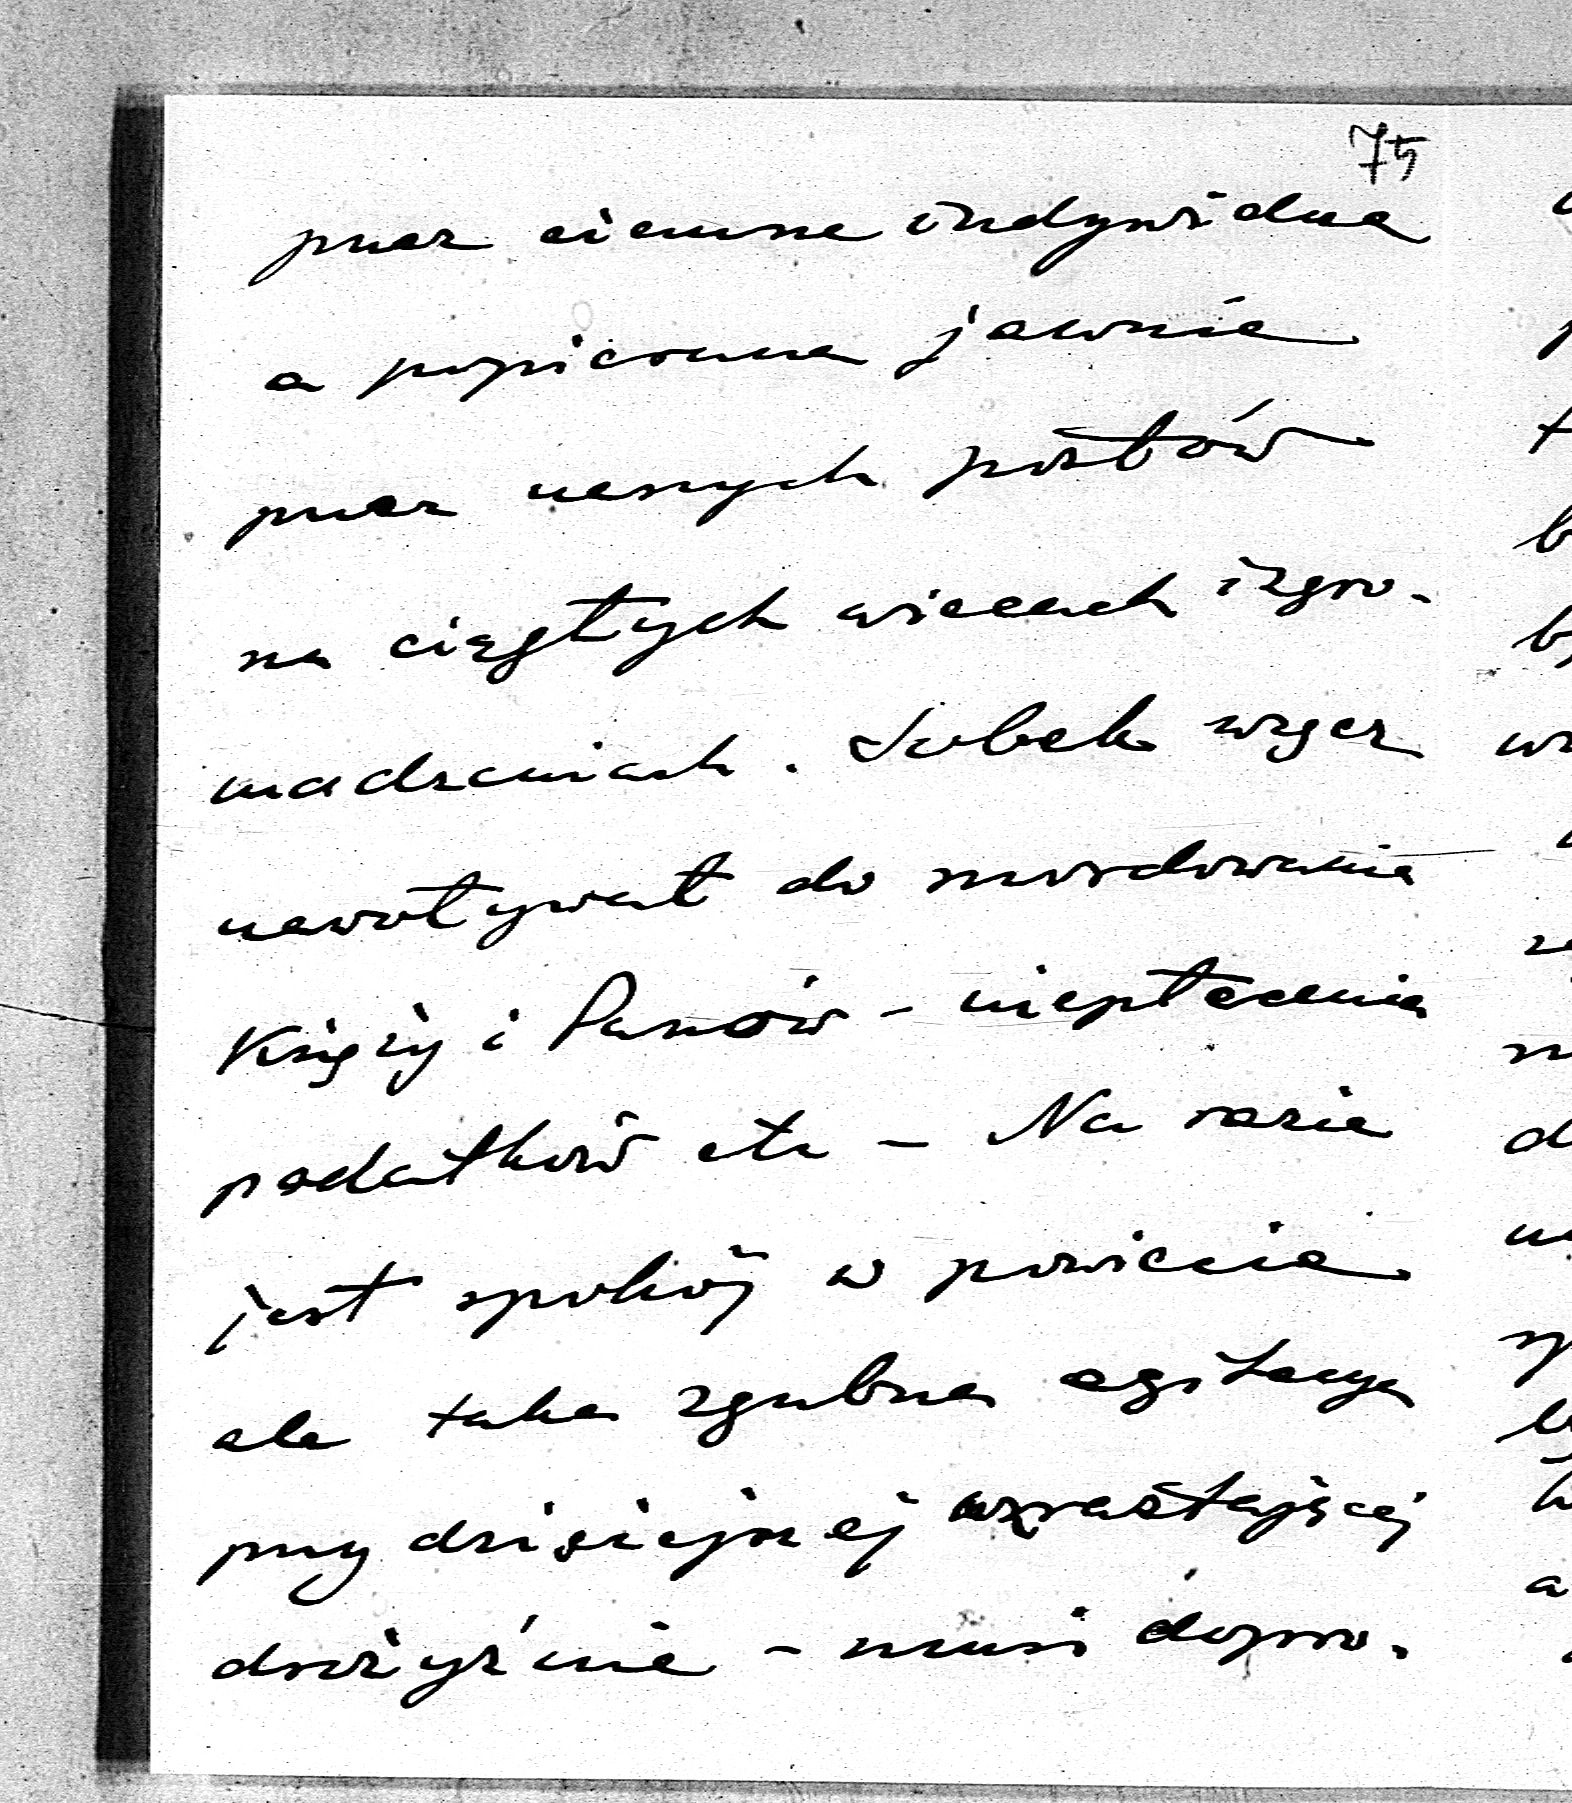 75
przez ciemne indywidua
a popierana jawnie
przez naszych posłów
na ciągłych wiecach i zgro-
madzeniach. Sobek wręcz
nawoływał do mordowania
Księży i Panów - niepłacenia
podatków etc - Na razie
jest spokój w powiecie
ale taka zgubna agitacya
przy dzisiejszej wzrastającej
drożyźnie - musi dopro-